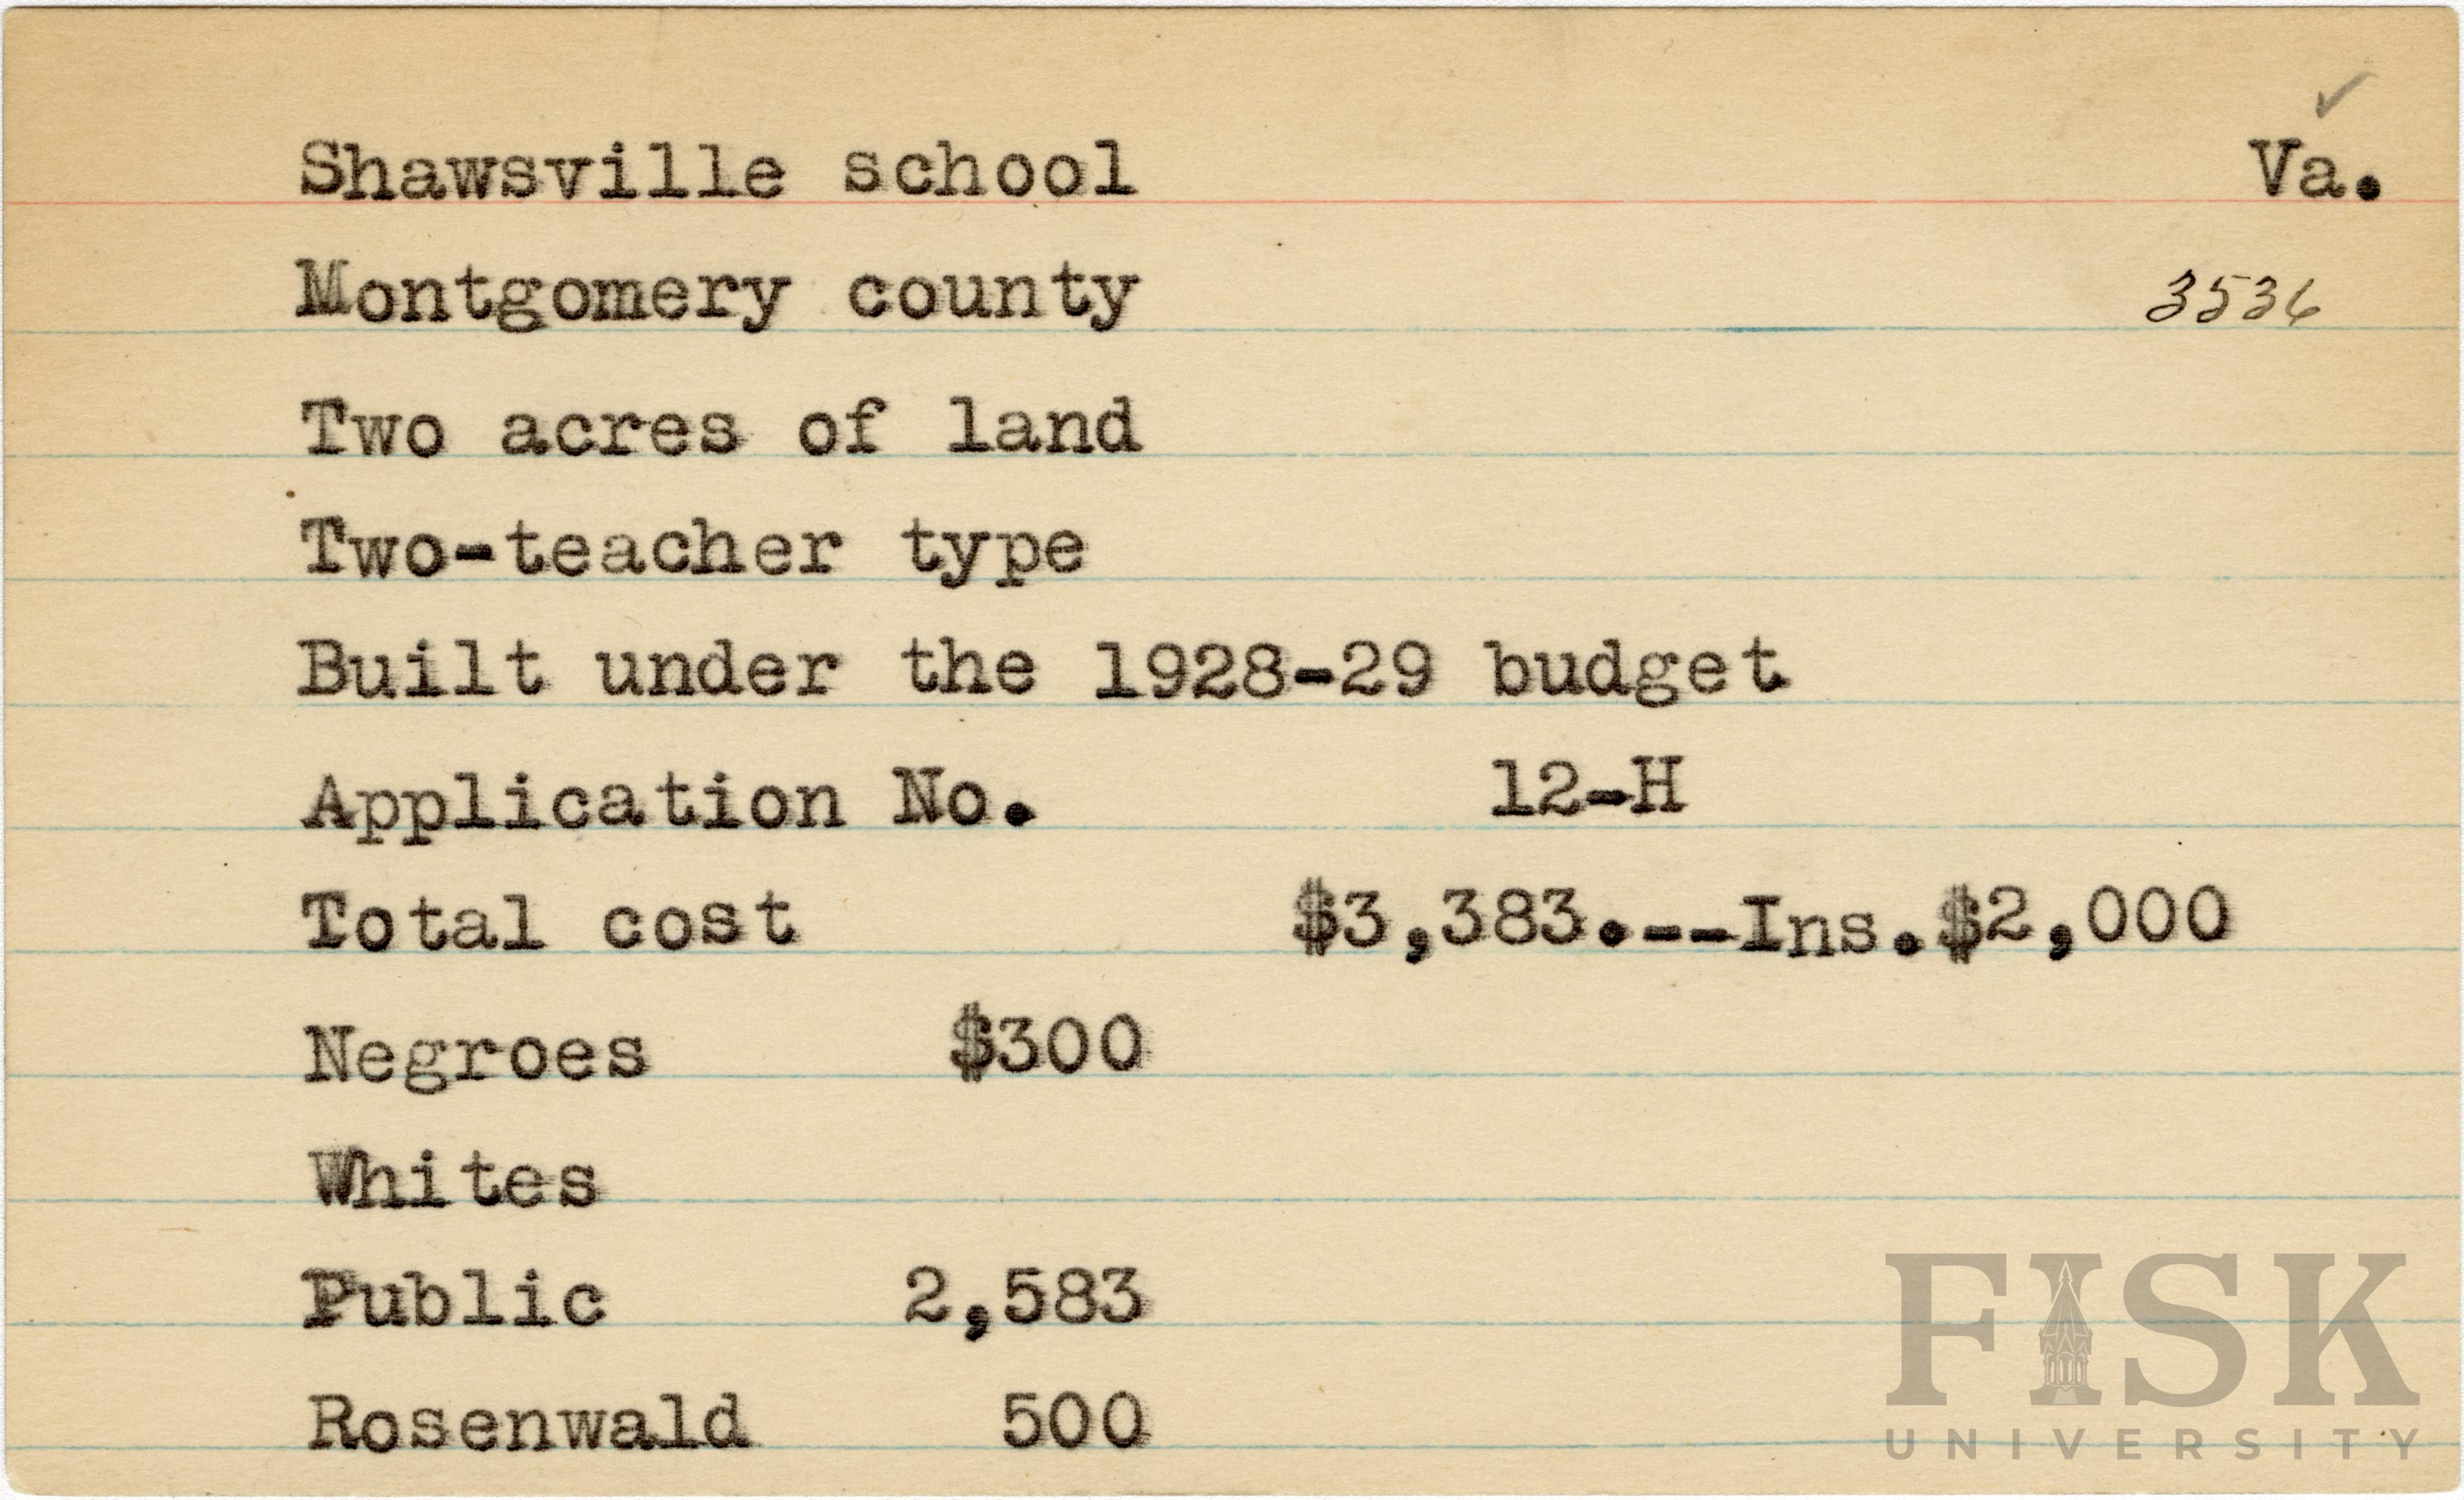 Shawsville school Va.
Montgomery county 3536
Two acres of land
Two-teacher type
Built under the 1928-29 budget
Application No. 12-H
Total cost $3,383.--Ins.$2,000
Negroes $300
Whites
Public 2,583
Rosenwald 500
FISK
UNIVERSITY